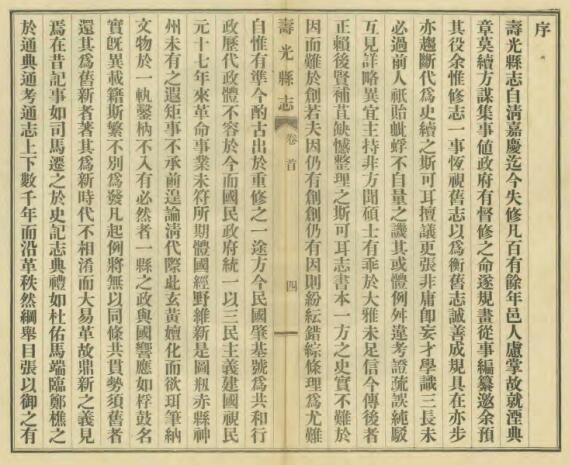 序
壽光縣志自清嘉慶迄今失修凡百有餘年邑人慮掌故就湮典
章莫續方謀集事値政府有督修之命遂規畫從事編纂邀余預
其役余惟修志一事恆視舊志以爲衡舊志誠善成規具在亦步
亦趨斷代爲史續之斯可耳擅議更張非庸卽妄才學識三長未
必過前人祇貽蚍蜉不自量之譏其或體例舛違考證疏誤純駁
互見詳略異宜主持非方聞碩士有乖於大雅未足信今傳後者
正賴後賢補苴缺憾整理之斯可耳志書本一方之史實不難於
因而難於創若夫因仍有創創仍有因則紛紜錯綜條理爲尤難
壽光縣志
卷首
四
自惟有準今酌古出於重修之一途方今民國肇基號爲共和行
政歷代政體不容於今而國民政府統一以三民主義建國視民
元十七年來革命事業未符所期體國經野維新是圖瓶赤縣神
州未有之遐矩事不承前遑論清代際此玄黃嬗化而欲珥筆納
文物於一軌鑿枘不入有必然者一縣之政與國響應如桴鼓名
實旣異載籍斯繁不別爲發凡起例將無以同條共貫勢須舊者
還其爲舊新者著其爲新時代不相淆而大易革故鼎新之義見
焉在昔記事如司馬遷之於史記志典禮如杜佑馬端臨鄭樵之
於通典通考通志上下數千年而沿革秩然綱舉目張以御之有